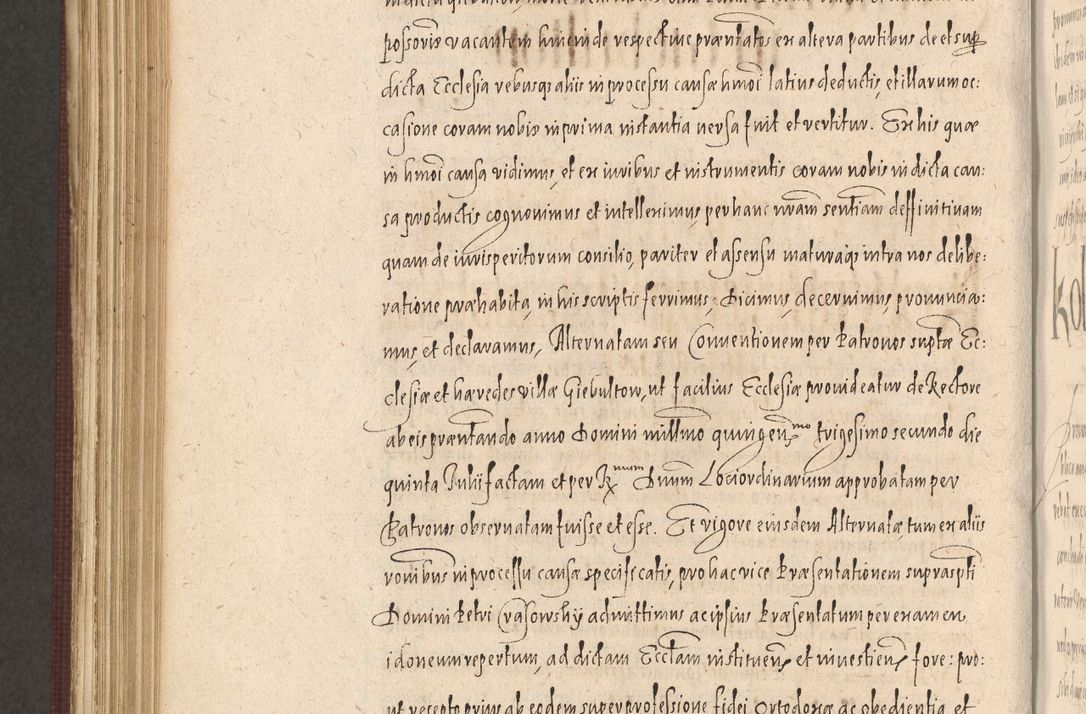 possorio vacantem hincinde respective præntatos ex altera partibus de et sup
dicta Ecclesia rebusq aliis in processu causæ hmoi latius deductis, et illarum oc:
casione coram nobis in prima instantia versa fuit et vertitur. Ex his quæ
in hmoi causa vidimus, et ex iuribus et instrumentis coram nobis in dicta cau
sa productis cognovimus et intelleximus, per hanc nram sentiam deffinitivam
quam de iurisperitorum consilio, pariter et assensu maturaq intra nos delibe:
ratione præhabita, in his scriptis ferrimus, Dicimus, decernimus, pronuncia:
mus, et declaramus, Alternatam seu Conventionem per Patronos suptæ Ec:
clesiæ et hæredes villæ Giebultow, ut facilius Ecclesiæ provideatur de Rectore
ab eis præntando anno Domini millmo quingen mo trigesimo secundo die
quinta Julii factam et per R num Dnum Lociordinarium approbatam per
Patronos observatam fuisse et esse. Et vigore eiusdem Alternatæ tum ex aliis
ronibus in processu causæ specificatis, pro hac vice Præsentationem supraspti
Domini Petri Crasowsky admittimus ac ipsius Præsentatum per examen
idoneum repertum, ad dictam Ecclam instituen et investien fore: pro:
ut recepto prius ab eodem super professione fidei Ortodoxæ ac obedientia et